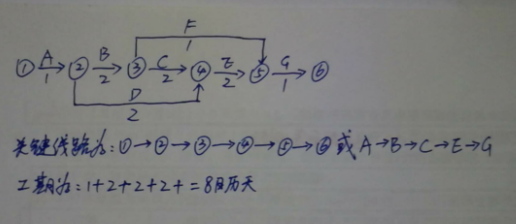 F
1
① A ② B ③ C ④ E ⑤ G ⑥
1 2 2 2 1
D
2
关键线路为:①→②→③→④→⑤→⑥或A→B→C→E→G
工期为:1+2+2+2+=8日历天